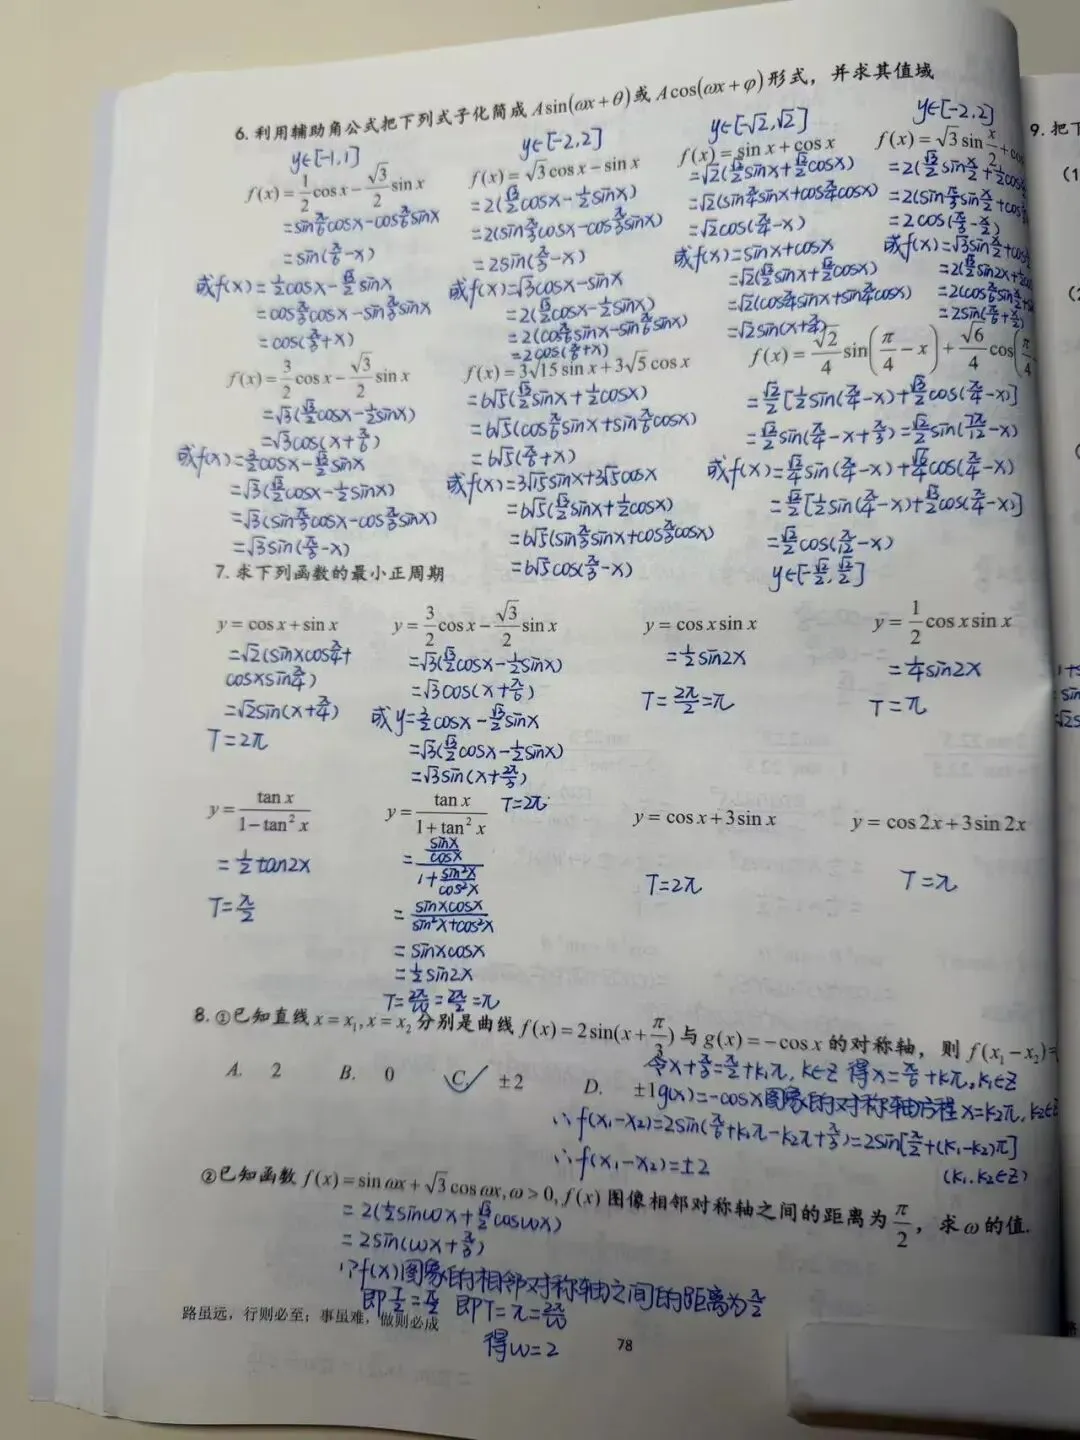 6. 利用辅助角公式把下列式子化简成 Asin(ωx+θ)或 Acos(ωx+φ)形式，并求其值域
y∈[-1,1]
f(x)=1/2cosx-√3/2sinx
=sinπ/6cosx-cosπ/6sinx
=sin(π/6-x)
或f(x)=1/2cosx-√3/2sinx
=cosπ/3cosx-sinπ/3sinx
=cos(π/3+x)
y∈[-2,2]
f(x)=√3cosx-sinx
=2(√3/2cosx-1/2sinx)
=2(sinπ/3cosx-cosπ/3sinx)
=2sin(π/3-x)
或f(x)=√3cosx-sinx
=2(√3/2cosx-1/2sinx)
=2(cosπ/6sinx-sinπ/6sinx)
=2cos(π/6+x)
y∈[-√2,√2]
f(x)=sinx+cosx
=√2(√2/2sinx+√2/2cosx)
=√2(sinπ/4sinx+cosπ/4cosx)
=√2cos(π/4-x)
或f(x)=sinx+cosx
=√2(√2/2sinx+√2/2cosx)
=√2(cosπ/4sinx+sinπ/4cosx)
=√2sin(x+π/4)
y∈[-2,2]
f(x)=√3sinx/2+cos
=2(√3/2sinx/2+1/2cos
=2(sinπ/3sinx/2+cos
=2cos(π/3-x/2)
或f(x)=√3sinx/2+cos
=2(√3/2sin2x+1/2
=2(cosπ/6sinx/2+
=2sin(π/6+x/2)
f(x)=3/2cosx-√3/2sinx
=√3(√3/2cosx-1/2sinx)
=√3cos(x+π/6)
或f(x)=3/2cosx-√3/2sinx
=√3(√3/2cosx-1/2sinx)
=√3(sinπ/3cosx-cosπ/3sinx)
=√3sin(π/3-x)
f(x)=3√15sinx+3√5cosx
=6√5(√3/2sinx+1/2cosx)
=6√5(cosπ/6sinx+sinπ/6cosx)
=6√5(π/6+x)
或f(x)=3√15sinx+3√5cosx
=6√5(√3/2sinx+1/2cosx)
=6√5(sinπ/3sinx+cosπ/3cosx)
=6√5cos(π/3-x)
f(x)=√2/4sin(π/4-x)+√6/4cos(π
=√2/2[1/2sin(π/4-x)+√3/2cos(π/4-x)]
=√2/2sin(π/4-x+π/3)=√2/2sin(7π/12-x)
或f(x)=√2/4sin(π/4-x)+√6/4cos(π/4-x)
=√2/2[1/2sin(π/4-x)+√3/2cos(π/4-x)]
=√2/2cos(π/12-x)
y∈[-√2/2,√2/2]
7. 求下列函数的最小正周期
y=cosx+sinx
=√2(sinxcosπ/4+
cosxsinπ/4)
=√2sin(x+π/4)
T=2π
y=3/2cosx-√3/2sinx
=√3(√3/2cosx-1/2sinx)
=√3cos(x+π/6)
或y=3/2cosx-√3/2sinx
=√3(√3/2cosx-1/2sinx)
=√3sin(x+2π/3)
T=2π
y=cosxsinx
=1/2sin2x
T=2π/2=π
y=1/2cosxsinx
=1/4sin2x
T=π
y=tanx/(1-tan²x)
=1/2tan2x
T=π/2
y=tanx/(1+tan²x)
=(sinx/cosx)/(1+sin²x/cos²x)
=sinxcosx/(sin²x+cos²x)
=sinxcosx
=1/2sin2x
T=2π/ω=2π/2=π
y=cosx+3sinx
T=2π
y=cos2x+3sin2x
T=π
8. ①已知直线x=x₁,x=x₂分别是曲线f(x)=2sin(x+π/3)与g(x)=-cosx的对称轴，则f(x₁-x₂)=
令x+π/3=π/2+k₁π,k∈Z 得x=π/6+kπ,k₁∈Z
A. 2 B. 0 C. ±2 D. ±1
g(x)=-cosx图象的对称轴方程x=k₂π,k₂∈Z
∴f(x₁-x₂)=2sin(π/6+k₁π-k₂π+π/3)=2sin[π/2+(k₁-k₂)π]
∴f(x₁-x₂)=±2
(k₁,k₂∈Z)
②已知函数f(x)=sinωx+√3cosωx,ω>0,f(x)图像相邻对称轴之间的距离为π/2，求ω的值.
=2(1/2sinωx+√3/2cosωx)
=2sin(ωx+π/3)
∵f(x)图象的相邻对称轴之间的距离为π/2
即T/2=π/2 即T=π=2π/ω
得ω=2
路虽远，行则必至；事虽难，做则必成
78
9. 把下
(1
(2